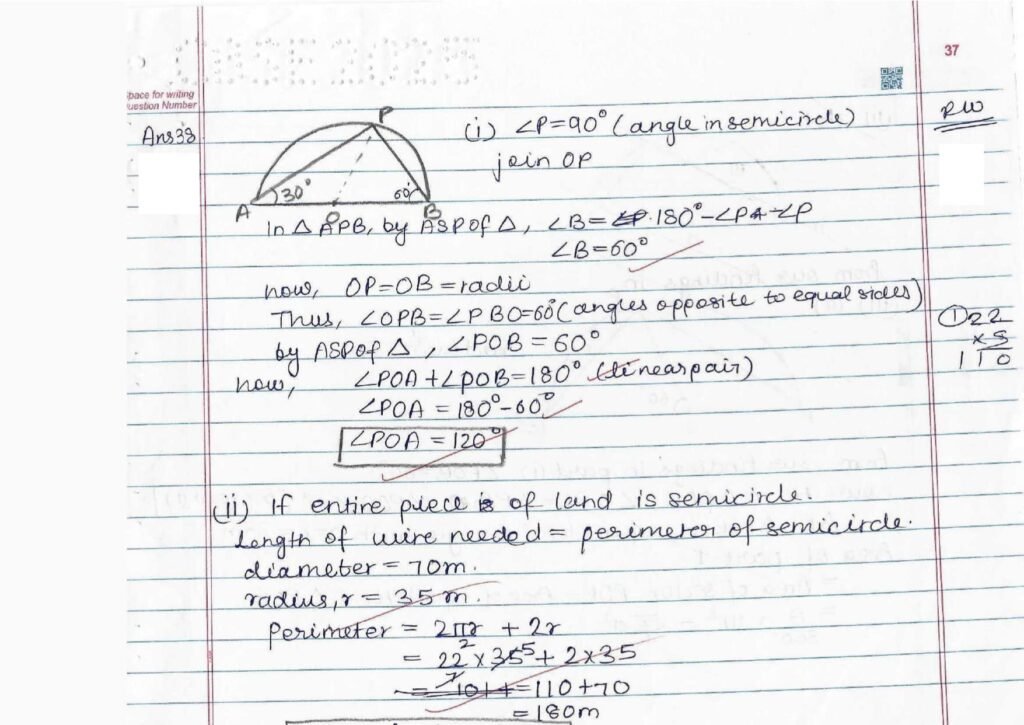 37
Space for writing
Question Number
RW
Ans 38.
P
30°
60°
A
O
B
(i) ∠P=90° (angle in semicircle)
join OP
in △ APB, by ASP of △, ∠B= 180°-∠PA-∠P
∠B=60°
now, OP=OB =radii
Thus, ∠OPB=∠PBO=60° (angles opposite to equal sides)
by ASP of △, ∠POB = 60°
now, ∠POA +∠POB=180° (linear pair)
∠POA = 180°-60°
∠POA = 120°
① 22
×5
110
(ii) If entire piece of land is semicircle.
Length of wire needed = perimeter of semicircle.
diameter = 70m.
radius, r = 35 m.
Perimeter = 2πr + 2r
2
= 22 × 35 5 + 2×35
7
= 110+70
= 180m